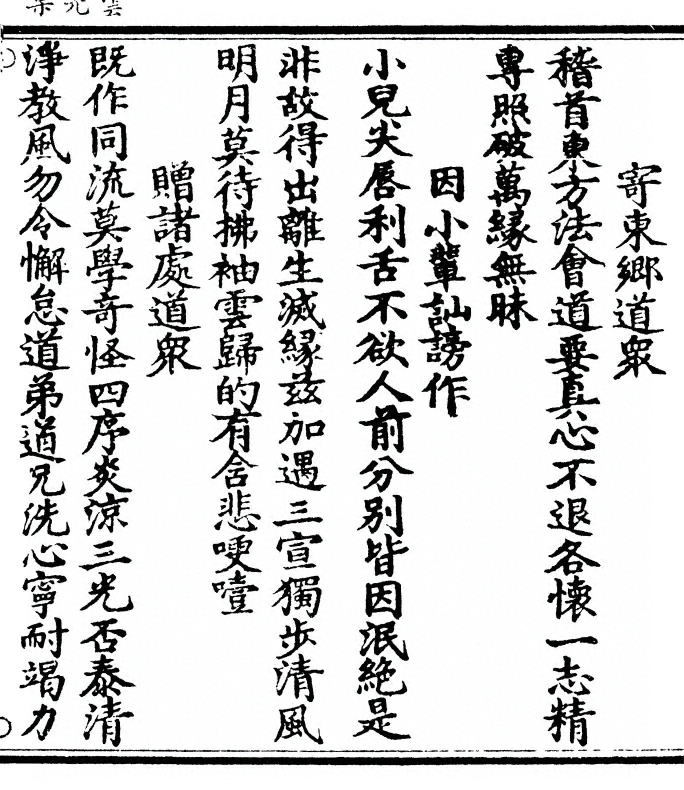 寄東鄉道衆
稽首東方法會道要真心不退各懷一志精
專照破萬緣無昧
因小輩訕謗作
小兒尖唇利舌不欲人前分別皆因泯絶是
非故得出離生滅緣茲加遇三宣獨步清風
明月莫待拂袖雲歸的有舍悲哽噎
贈諸處道衆
既作同流莫學奇怪四序炎涼三光否泰清
淨教風勿令懈怠道弟道兄洗心寧耐竭力